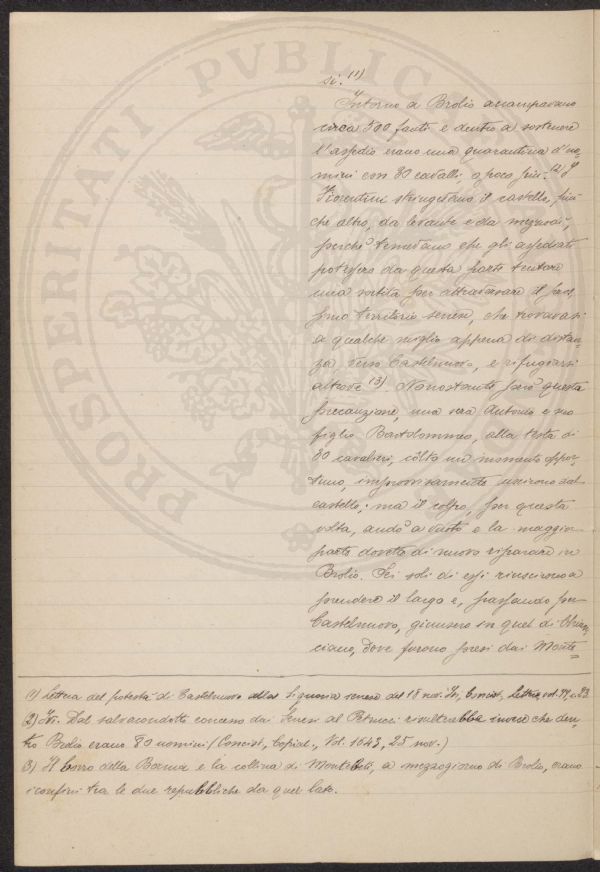 PROSPERITATI PVBLICAE
si. (1)
Intorno a Brolio accampavano
circa 500 fanti e dentro a sostenere
l'assedio erano una quarantina d'uo-
mini con 30 cavalli o poco più. (2) I
Fiorentini stringevano il castello, più
che altro, da levante e da mezzodì,
perchè temevano che gli assediati
potessero da questa parte tentare
una sortita per attraversare il pros
simo territorio senese, che trovavasi
a qualche miglio appena di distan-
za verso Castelnuovo, e rifugiarsi
altrove (3). Nonostante però questa
precauzione, una sera Antonio e suo
figlio Bartolommeo, alla testa di
30 cavalieri, còlto un momento oppor-
tuno, improvvisamente uscirono dal
castello; ma il colpo, per questa
volta, andò a vuoto e la maggior
parte dovette di nuovo riparare in
Brolio. Sei soli di essi riuscirono a
prendere il largo e, passando per
Castelnuovo, giunsero in quel di
ciano, dove furono presi dai Monte-
(1) Lettera del potestà di Castelnuovo alla Signoria senese del 18 nov. Concist., Lettere, vol.
2) Ivi. Dal salvacondotto concesso dai Senesi al Petrucci risulterebbe invece che den-
tro Brolio erano 80 uomini (Concist., Copial., Vol. 1643, 25 nov.)
3) Il borro della e la collina di a mezzogiorno di Brolio, erano
i confini tra le due repubbliche da quel lato.